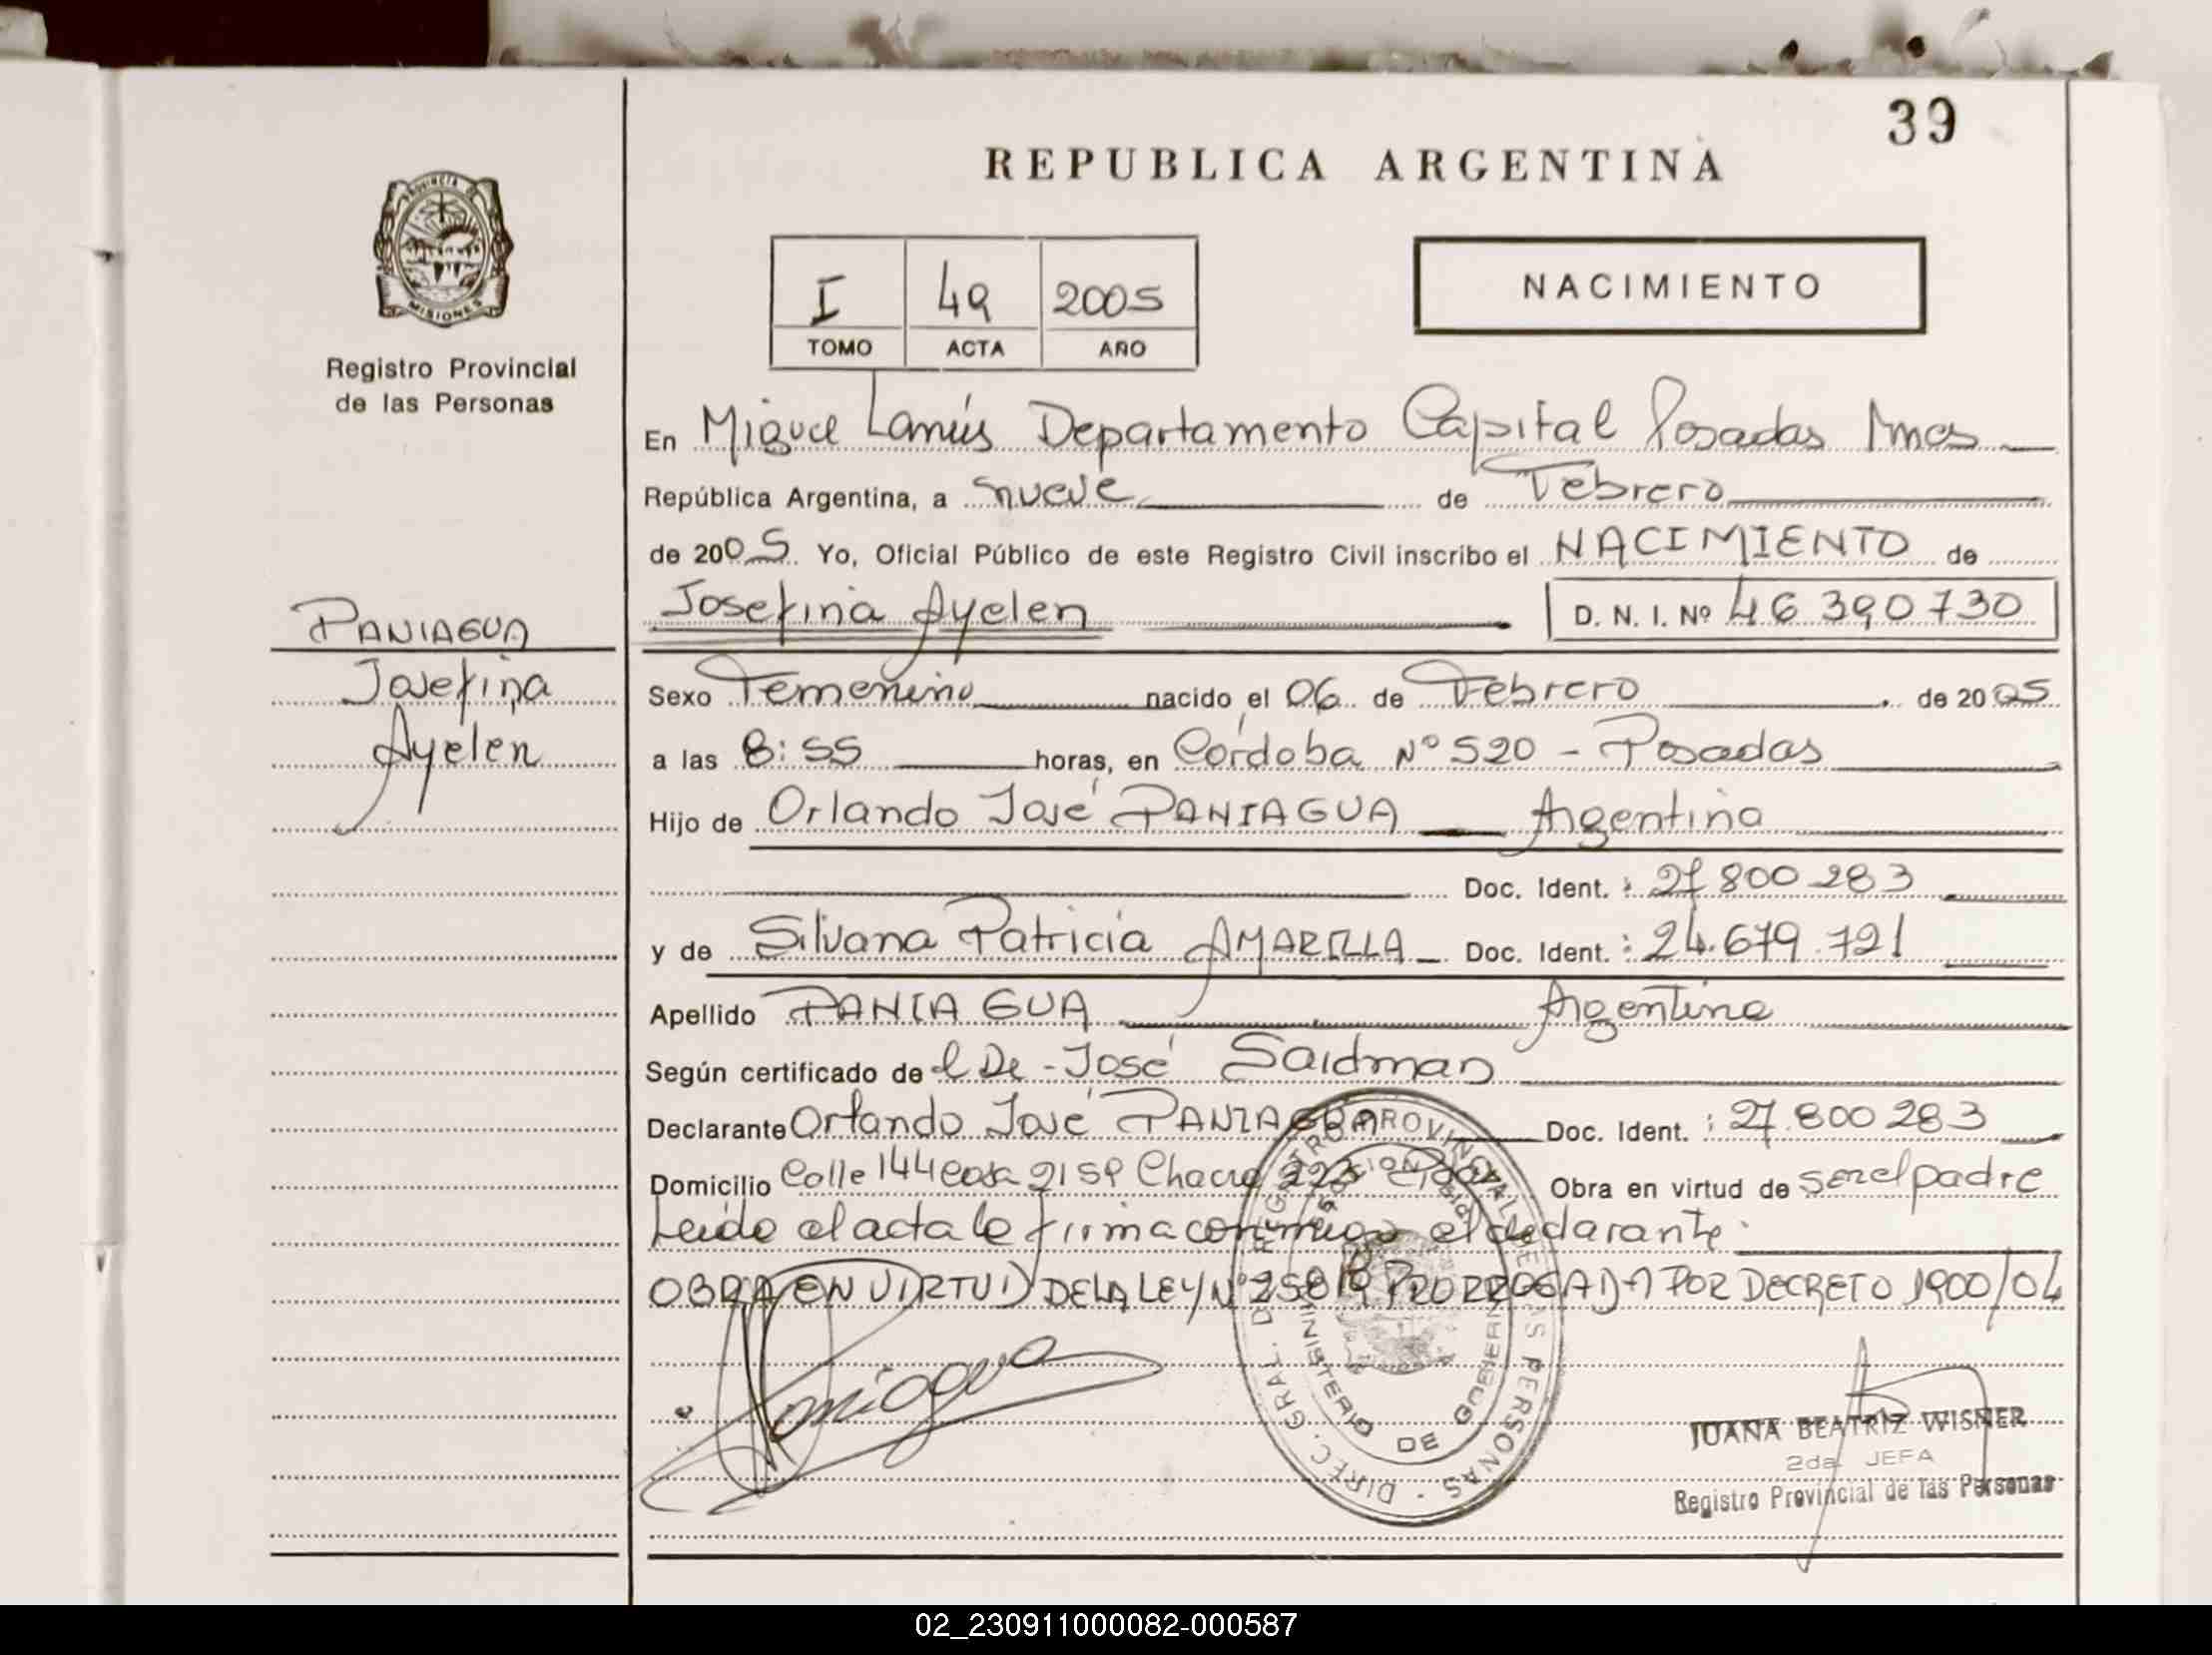 39
REPUBLICA ARGENTINA
PROVINCIA DE MISIONES
Registro Provincial
de las Personas
I 49 2005
TOMO ACTA AÑO
NACIMIENTO
En Miguel Lanús Departamento Capital Posadas Mnes
República Argentina, a nueve de Febrero
de 2005 Yo, Oficial Público de este Registro Civil inscribo el NACIMIENTO de
Josefina Ayelen D. N. I. Nº 46 390730
PANIAGUA
Josefina
Ayelen
Sexo Femenino nacido el 06 de Febrero de 2005
a las 8:55 horas, en Córdoba Nº 520 - Posadas
Hijo de Orlando José PANIAGUA Argentino
Doc. Ident. : 27 800 283
y de Silvana Patricia AMARILLA Doc. Ident. : 24.679.721
Apellido PANIAGUA Argentina
Según certificado de José Saidman
Declarante Orlando José PANIAGUA Doc. Ident. : 27.800 283
Domicilio Calle 144 casa 2159 Chacra 223 Obra en virtud de ser el padre
Leído el acta la firma conmigo el declarante.
OBRA EN VIRTUD DE LA LEY Nº 25819 PRORROGADA POR DECRETO 1900/04
Paniagua
DIREC. GRAL. DE REGISTRO PROVINCIAL DE LAS PERSONAS
MINISTERIO DE GOBIERNO
JUANA BEATRIZ WISNER
2da. JEFA
Registro Provincial de las Personas
02_230911000082-000587